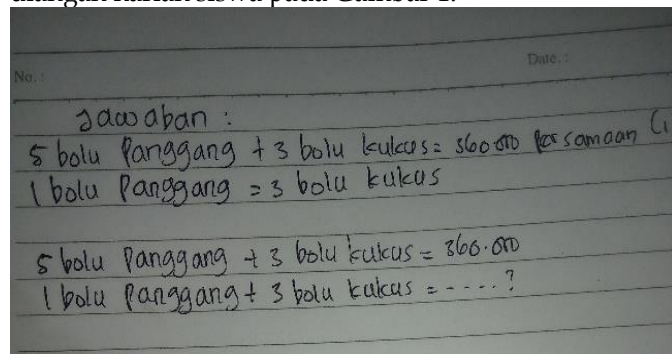 No. :
Date. :
Jawaban :
5 bolu Panggang + 3 bolu kukus = 360.000 Persamaan (1
1 bolu Panggang = 3 bolu kukus
5 bolu Panggang + 3 bolu kukus = 360.000
1 bolu Panggang + 3 bolu kukus = - - - - . ?